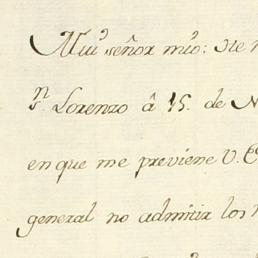 Muŭ señor mío: He r
S.ⁿ Lorenzo â 15. de N
en que me previene V. E
general no admitir los